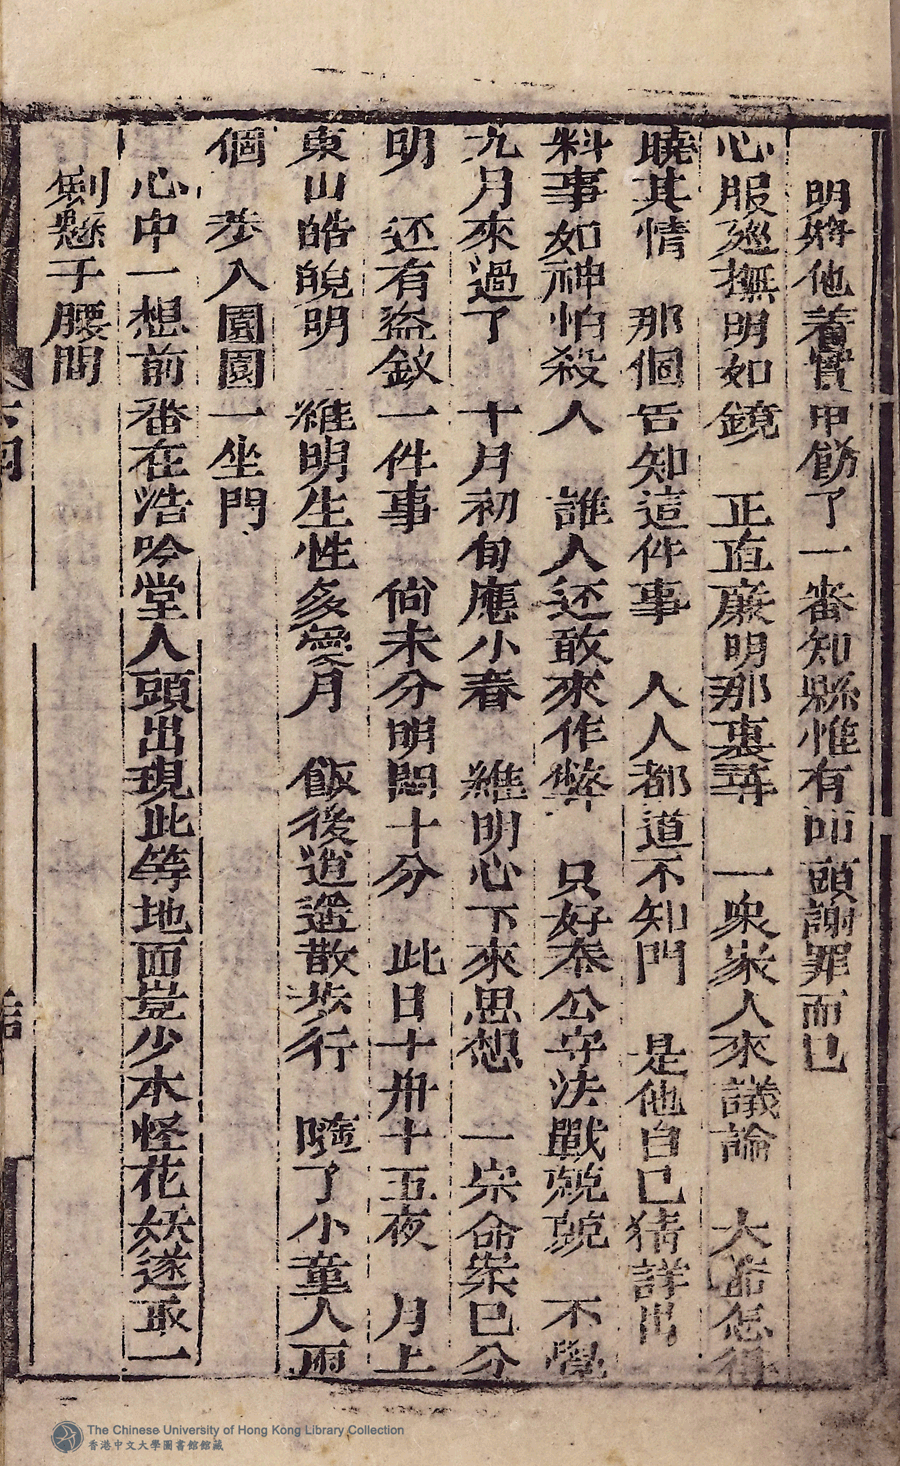 明將他着實申飭了一番知縣惟有叩頭謝罪而已
心服廵撫明如鏡 正直廉明那裏尋 一衆家人來議論 大爺怎得
曉其情 那個告知這件事 人人都道不知門 是他自已猜詳出
料事如神怕殺人 誰人还敢來作弊 只好奉公守法戰兢兢 不學
九月來過了 十月初旬應小春 維明心下來思想 一宗命案已分
明 还有盗釵一件事 尙未分明悶十分 此日十月十五夜 月上
東山皓皖明 維明生性多愛月 飯後逍遥散步行 隨了小童人兩
個 步入園園一坐門
心中一想前番在浩吟堂人頭出現此等地面豈少木怪花妖遂取一
劍懸于腰間
The Chinese University of Hong Kong Library Collection
香港中文大學圖書館館藏